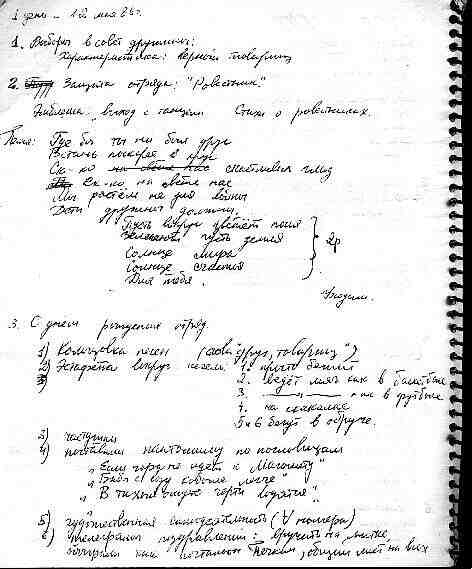 1 день – 12 мая 84г.
1. Выборы в совет дружины:
Характеристика: верный товарищ
2. Защита отряда: "Ровестник."
Эмблема: выход с танцем Стихи о ровестниках.
Песня: Где бы ты ни был друг
Встань поскорее в круг
Ск-ко на свете нас счастливых глаз
Ск-ко на свете нас
Мы растём не для войны
Дети дружить должны.
Пусть вокруг цветёт поля
пусть земля
Солнце мира
Солнце счастья
Для тебя. 2р
Уходим.
3. С днём рождения отряд.
1) Кольцовка песен (слова "друг, товарищ")
2) Эстафета вокруг 1. просто бегали
3) 2. ведёт мяч как в баскетболе
3. как в футболе
4. на скакалке
5 и 6 бегут в обруче.
3) частушки
4) поставили пантомиму по пословицам
"Если гора не идёт к Магомету"
"Баба с возу кобыле легче"
"В тихом омуте черти водятся".
5) художественная самодеятельность (номера)
6) телеграмма поздравления: вручить на нитке,
почтальон Печкин, общий лист на всех